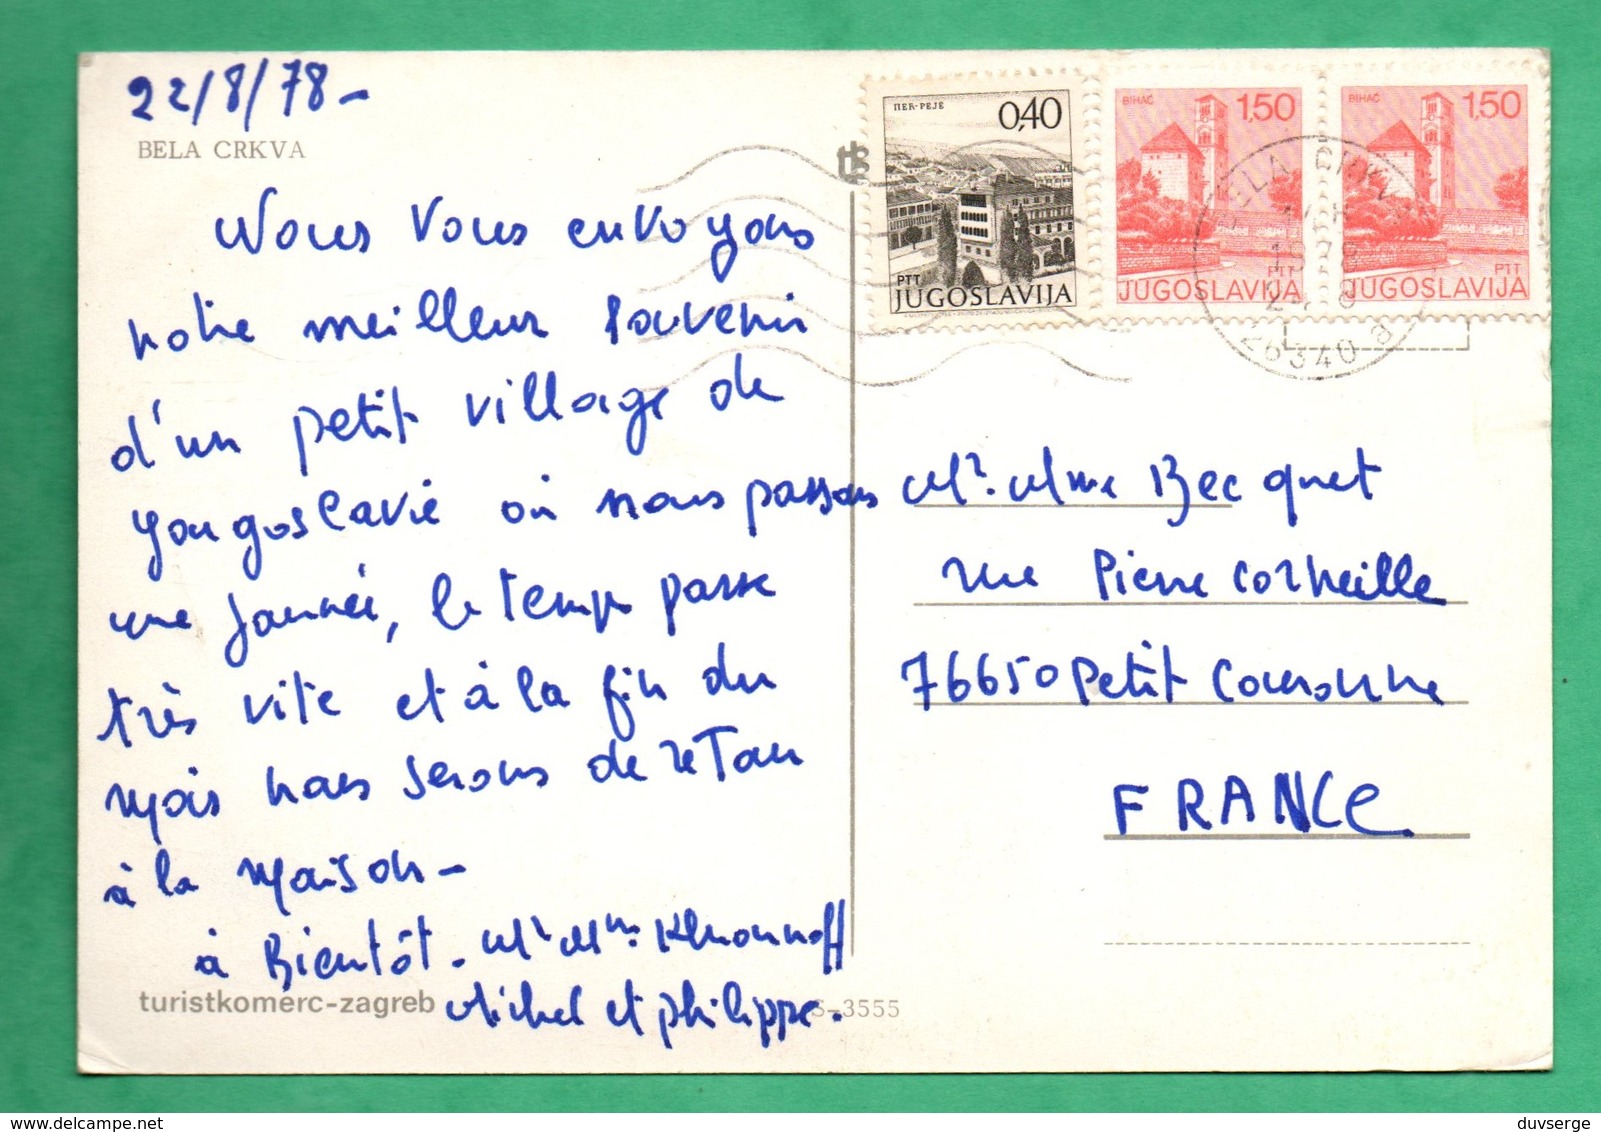 22/8/78-
BELA CRKVA
Nous Vous envoyons
notre meilleur souvenir
d'un petit village de
Yougoslavie où nous passons
une journée, le temps passe
très vite et à la fin du
mois nous serons de retour
à la maison-
à Bientôt. Mr Mme
Michel et philippe.
turistkomerc-zagreb
S-3555
ПЕЋ-PEJË
0,40
PTT
JUGOSLAVIJA
BIHAĆ
1,50
PTT
JUGOSLAVIJA
BIHAĆ
1,50
PTT
JUGOSLAVIJA
BELA CRKVA
26340 a
Mr. Mme Becquet
rue Pierre Corneille
76650 Petit Couronne
FRANCE
www.delcampe.net
duvserge